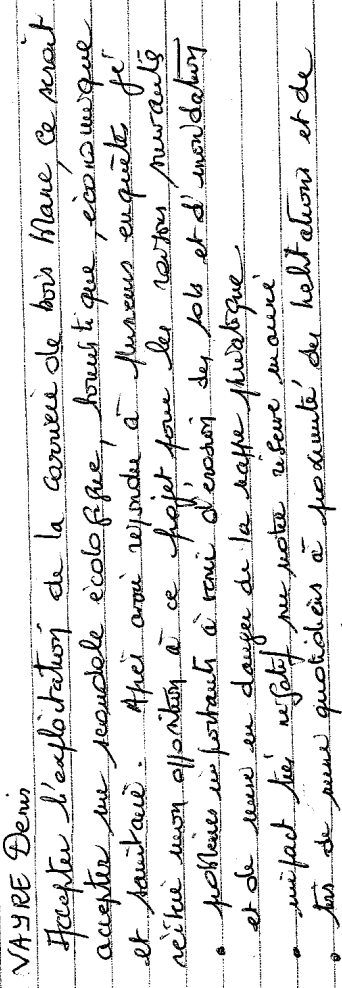 VAYRE Denis
Accepter l'exploitation de la carrière de bois Blanc, ce serait
accepter un scandale écologique, touristique, économique
et sanitaire. Après avoir répondu à plusieurs enquêtes je
réitère mon opposition à ce projet pour les raisons suivantes
• problèmes importants à venir d'érosion des sols et d'inondation
et de mise en danger de la nappe phréatique
• impact très négatif sur notre réserve marine
• tirs de mine quotidiens à proximité des habitations et de